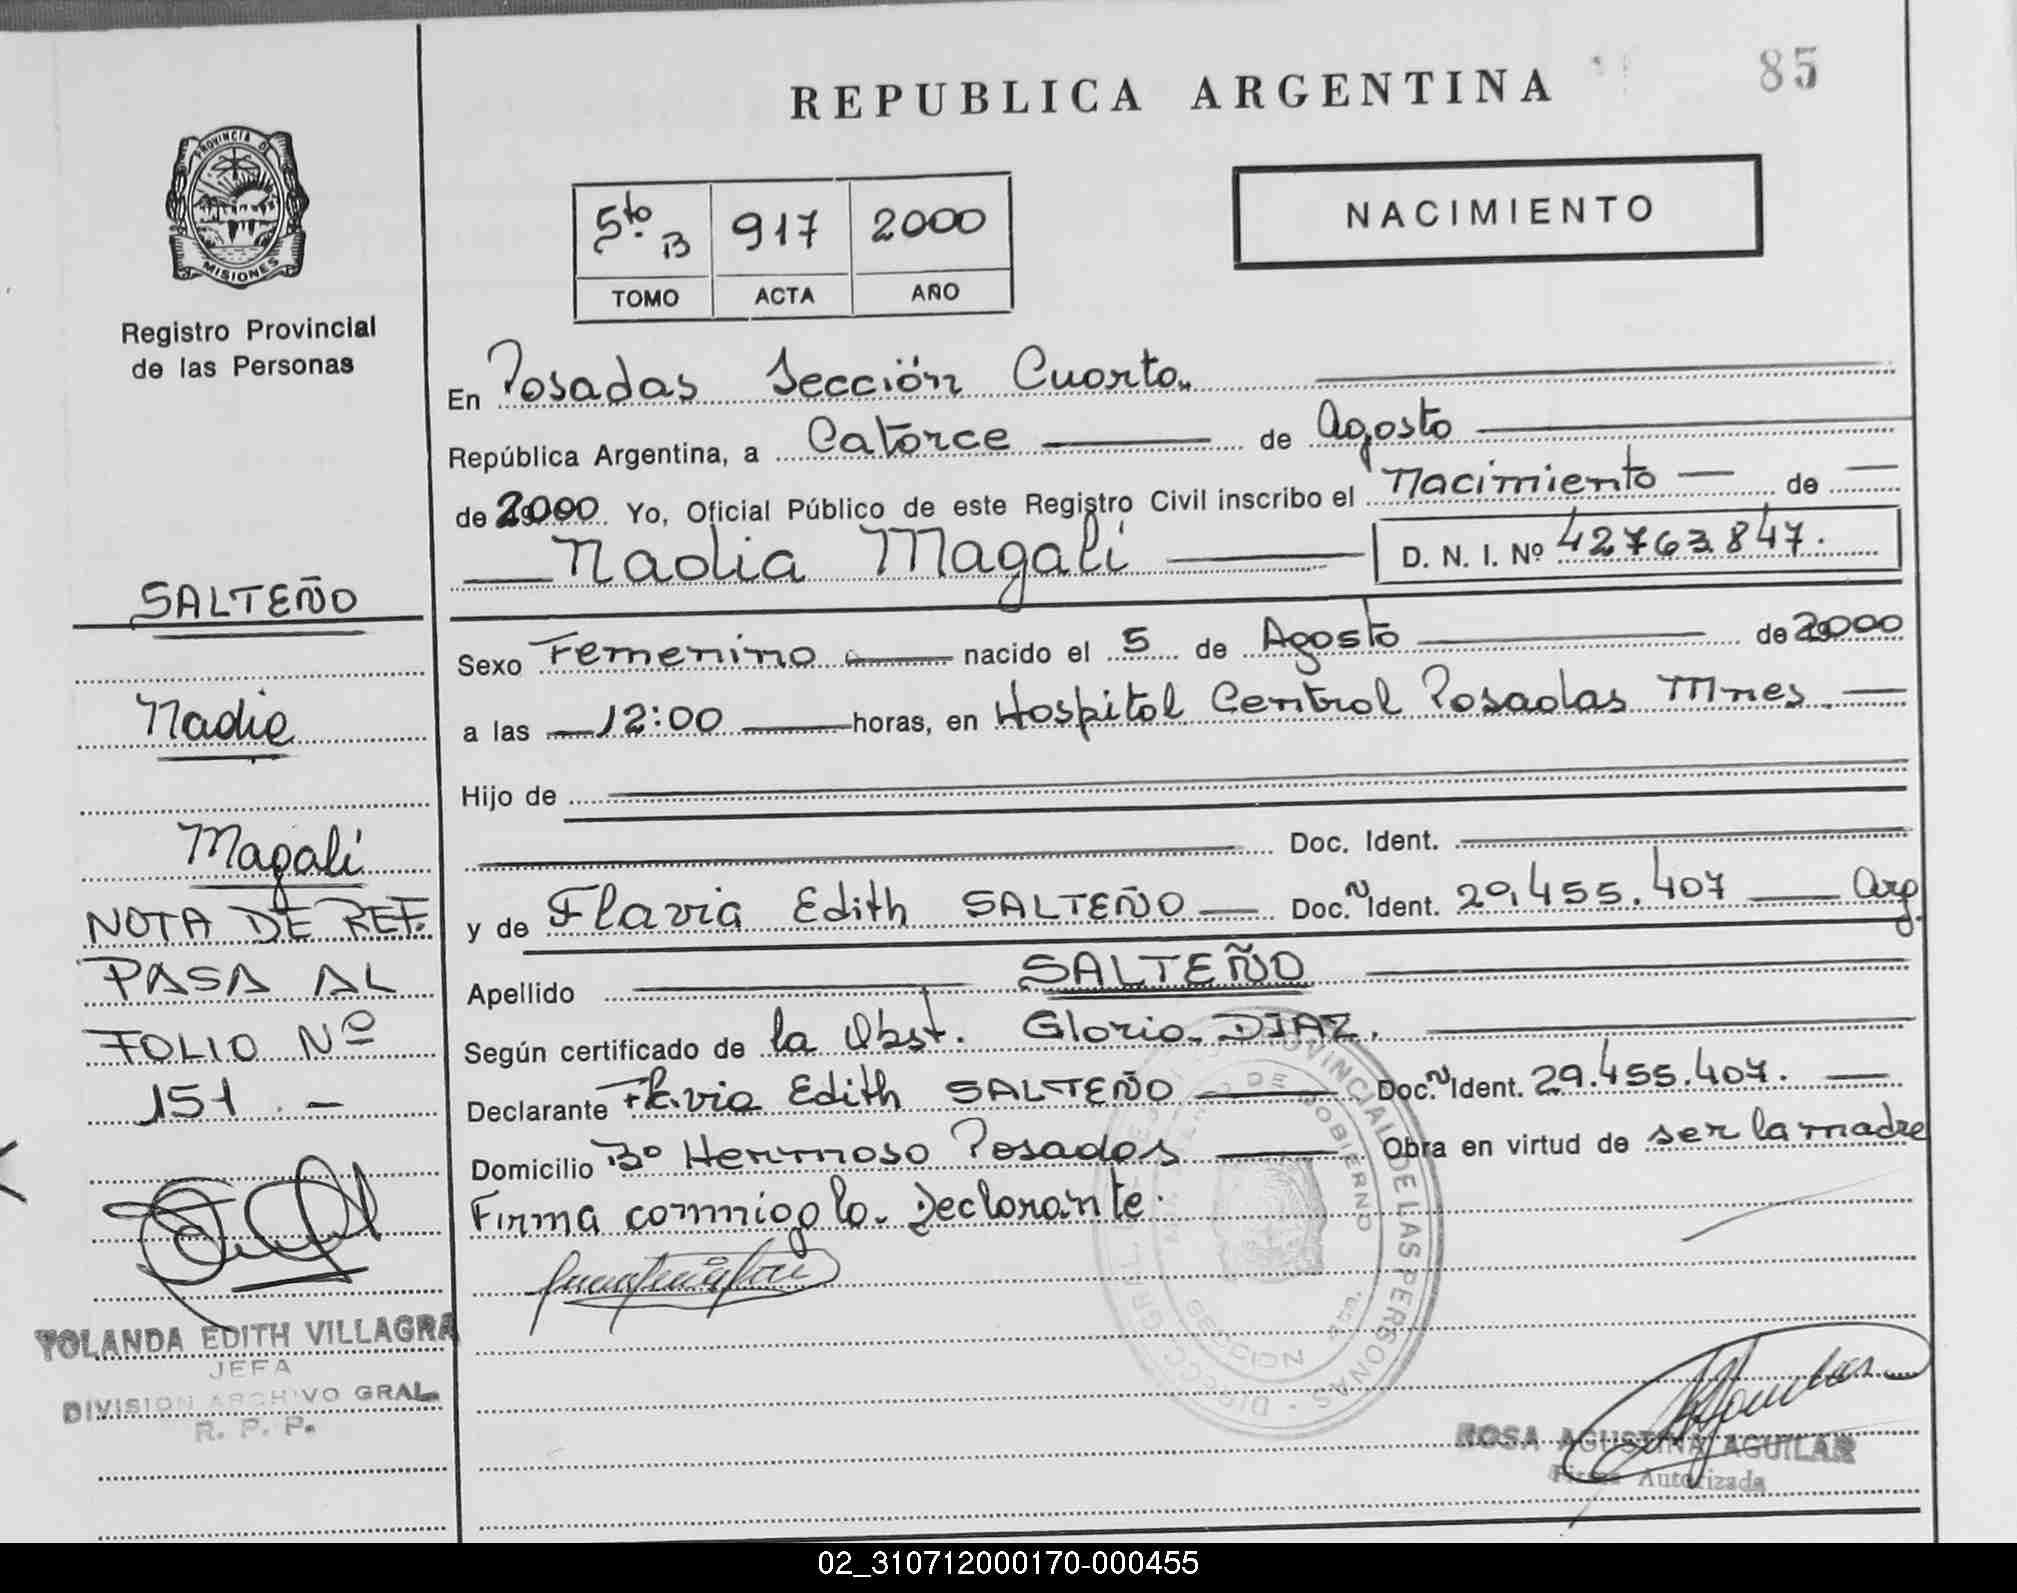 REPUBLICA ARGENTINA
85
PROVINCIA DE
MISIONES
Registro Provincial
de las Personas
5to. B 917 2000
TOMO ACTA AÑO
NACIMIENTO
En Posadas Sección Cuarta
República Argentina, a Catorce de Agosto
de 2000 Yo, Oficial Público de este Registro Civil inscribo el Nacimiento de
Nadia Magalí D. N. I. Nº 42763847.
Sexo Femenino nacido el 5 de Agosto de 2000
a las 12:00 horas, en Hospital Central Posadas Mnes.
Hijo de
Doc. Ident.
y de Flavia Edith SALTEÑO Doc. Ident. 29.455.407 Arg.
Apellido SALTEÑO
Según certificado de la Obst. Gloria DIAZ.
Declarante Flavia Edith SALTEÑO Doc. Ident. 29.455.407.
Domicilio Bº Hermoso Posadas Obra en virtud de ser la madre
Firma conmigo la Declarante.
SALTEÑO
Nadia
Magalí
NOTA DE REF.
PASA AL
FOLIO Nº
151.-
YOLANDA EDITH VILLAGRA
JEFA
DIVISION ARCHIVO GRAL.
R. P. P.
ROSA AGUSTINA AGUILAR
Firma Autorizada
02_310712000170-000455